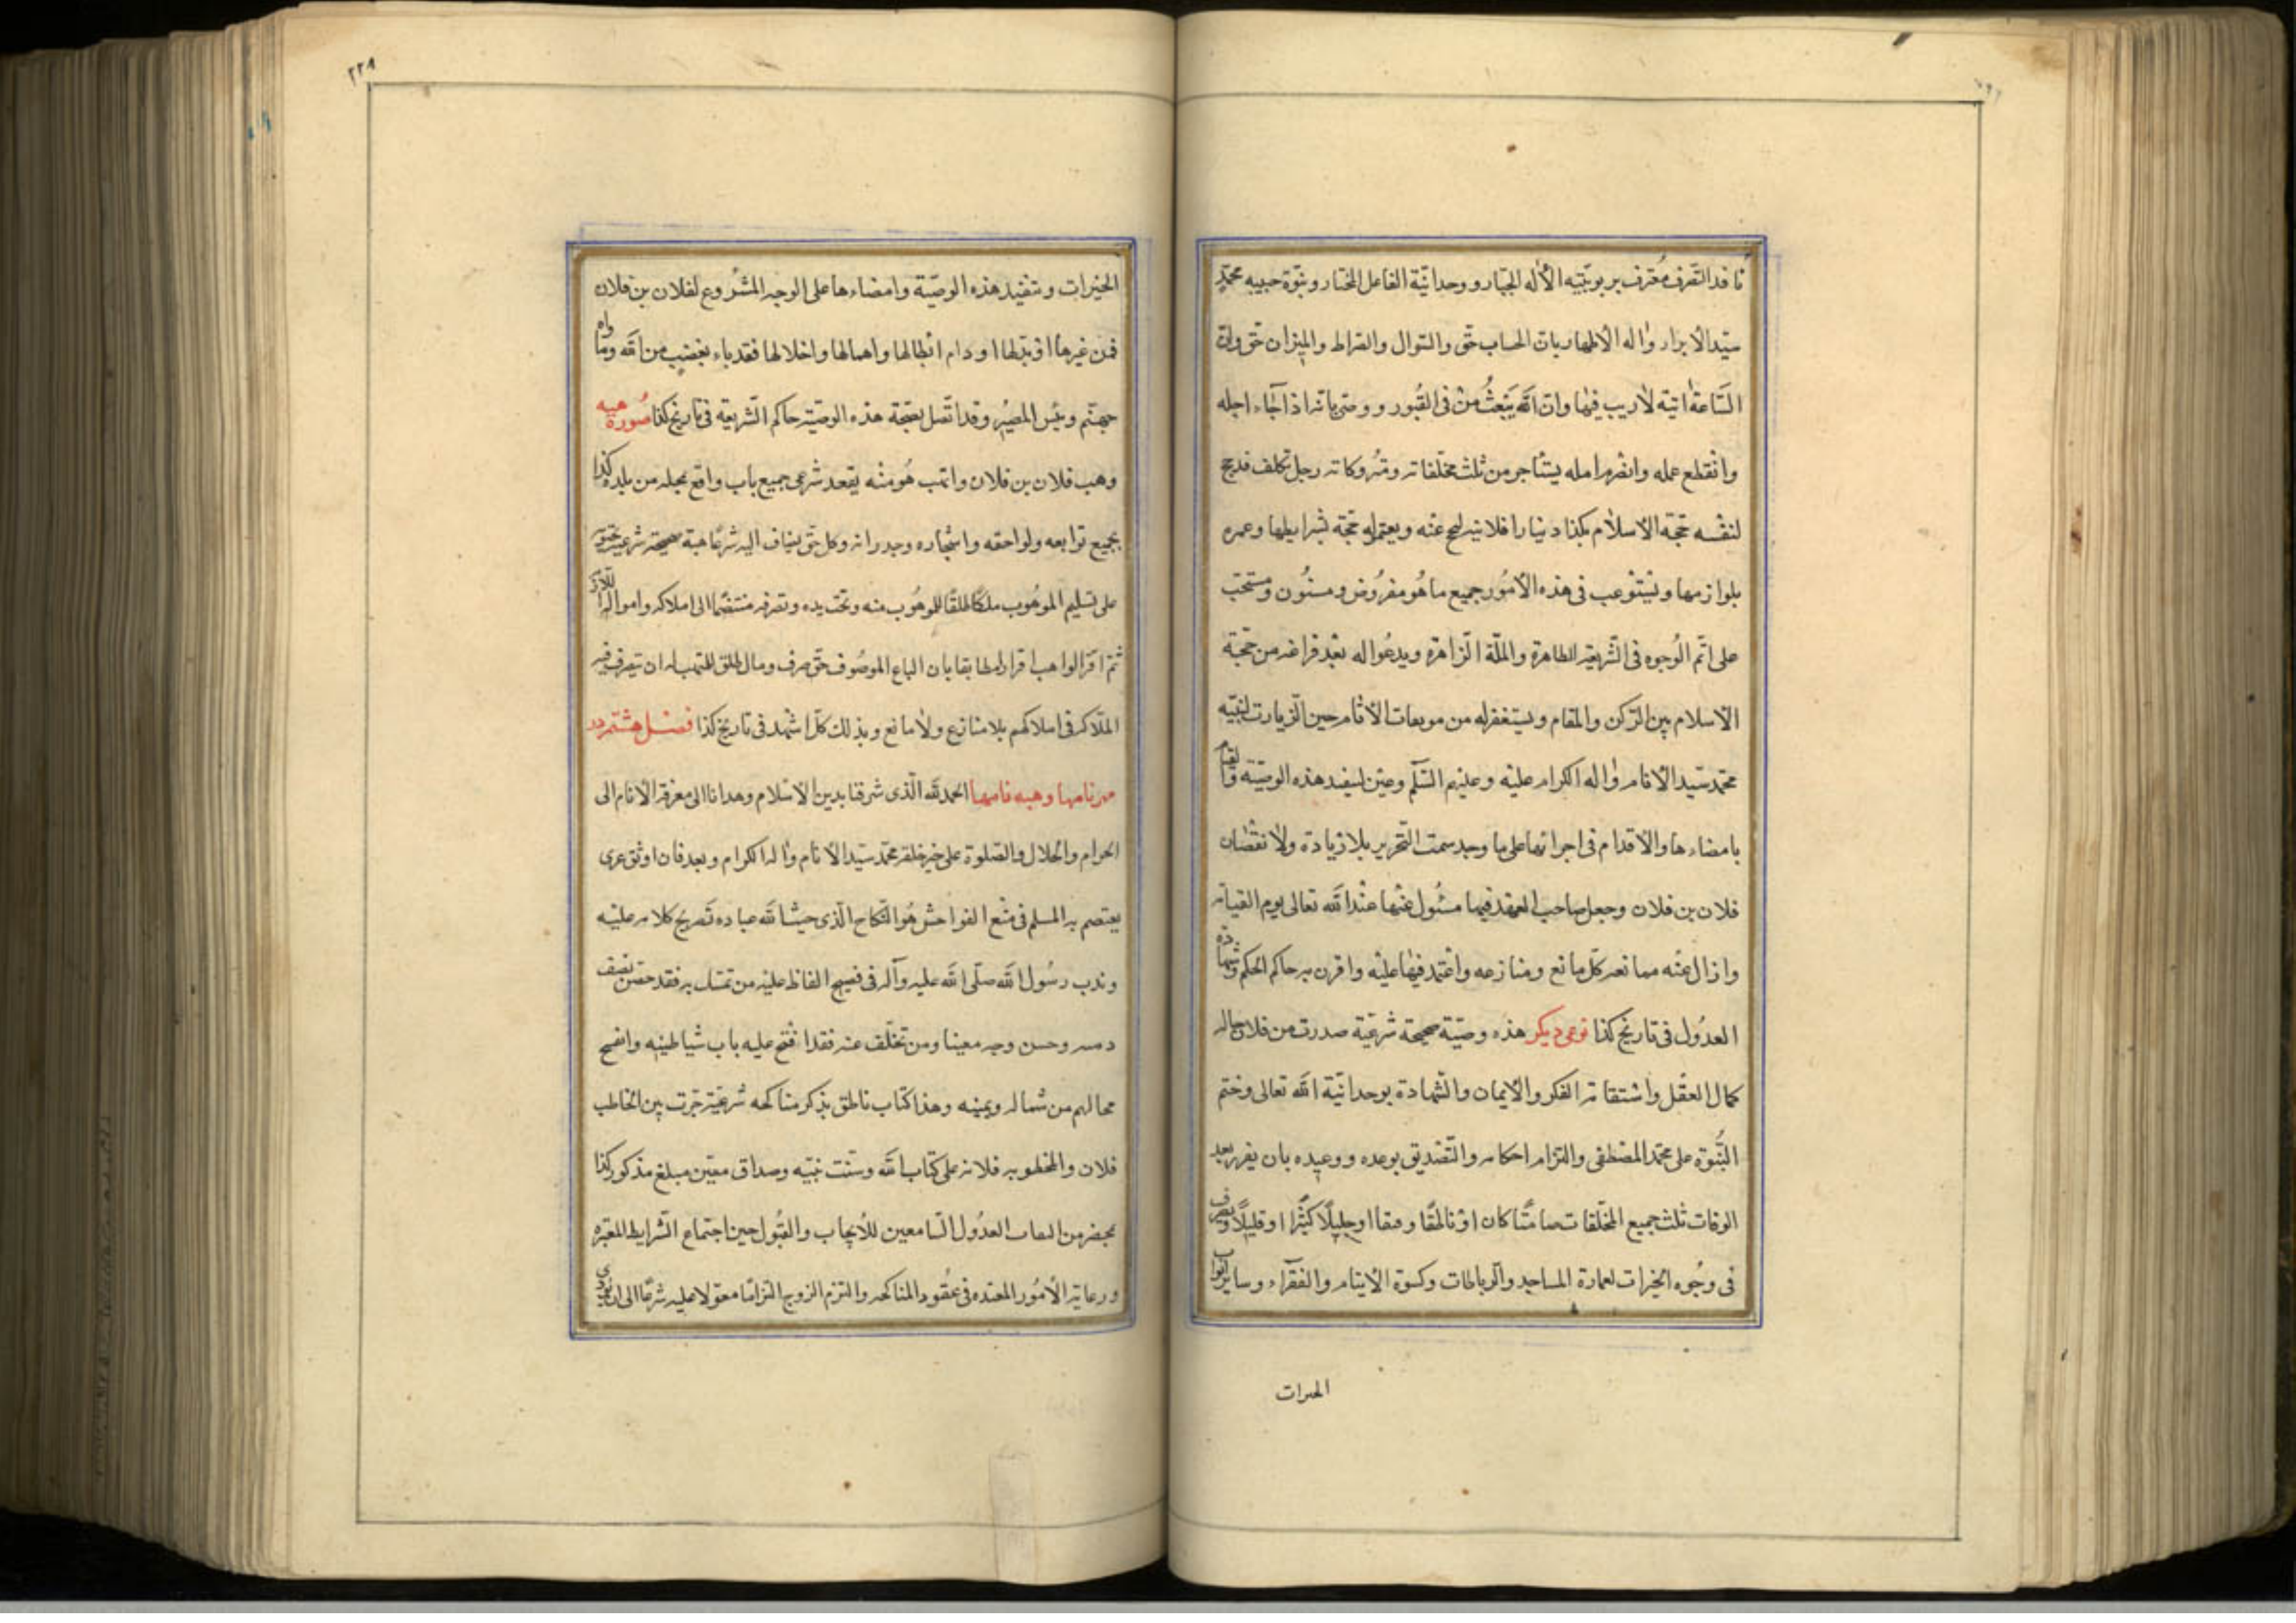 نافذ التصرف معترف بربوبيته الأله الجبار و وحدانيّة الفاعل المختار و نبوّة حبيبه محمّد
سيّد الأبرار واله الأطهار بان الحساب حقّ والسّوال والصّراط والميزان حقّ وان
السّاعة اتية لاريب فيها وان الله يبعث من فى القبور و وصّى بانه اذا جاء اجله
وانقطع عمله وانصرم امله يستأجر من ثلث مخلّفاته ومتروكاته رجل تكلف قد حج
لنفسه حجّة الاسلام بكذا دينارا فلانيه ليحج عنه ويعتمر له حجّة بشرايطها وعمره
بلوازمها ويستوعب فى هذه الأمور جميع ما هو مفروض ومسنون ومستحبّ
على اتم الوجوه فى الشّريعة الطاهرة والملّة الزّاهرة ويدعو اله بعد فراغه من حجّة
الاسلام بين الرّكن والمقام ويستغفر له من موبقات الأثام حين الزّيارت لنبيّه
محمّد سيّد الأنام واله الكرام عليه وعليهم السّلم وعيّن لتنفيذ هذه الوصيّة والقيام
بامضاءها والاقدام فى اجرائها على ما وجد سمت التّحرير بلا زيادة ولا نقصان
فلان بن فلان وجعل صاحب العهد فيها مسئول عنها عند الله تعالى يوم القيامة
وازال عنه ممانعه كلّ مانع ومنازعه واعتمد فيها عليه واقرن به حاكم الحكم وشهادة
العدول فى تاريخ كذا نوعى ديكر هذه وصيّة صحيحة شرعيّة صدرت من فلان حاله
كمال العقل واستقامة الفكر والأيمان والشّهادة بوحدانيّة الله تعالى وختم
النّبوّة على محمّد المصطفى والتزام احكامه والتّصديق بوعده ووعيده بان يفرز بعد
الوفات ثلث جميع المخلّفات صامتًا كان او ناطقًا وصفا او جليلًا كثيرًا او قليلًا ويصرف
فى وجوه الخيرات لعمارة المساجد والرباطات وكسوة الأيتام والفقرآء وساير ابواب
الحىرات
٢٢٨
الخيرات و بتنفيذ هذه الوصيّة وامضاءها على الوجه المشروع لفلان بن فلان
فمن غيرها او بدّلها او دام ابطالها واهمالها واخلالها فقد باء بغضب من الله وماواه
جهنّم وبئس المصير وقد اتّصل بصحّة هذه الوصيّة حاكم الشّريعة فى تاريخ كذا صورة هبه
وهب فلان بن فلان واتهب هو منه بعقد شرعى جميع باب واقع بمحله من بلده كذا
بجميع توابعه ولواحقه واشجاره وجدرانه وكل حق يضاف اليه شرعًا هبة صحيحة شرعية محتوية
على تسليم الموهوب ملكًا طلقًا للموهوب منه وتحت يده وتصرفه منتضمًا الى املاكه وامواله
ثمّ اقرّ الواهب اقرارا مطابقا بان الباع الموصوف حقّ صرف ومال طلق للمتهب له ان يتصرف فيه
الملّاك فى املاكهم بلا منازع ولا مانع وبذلك كلّا اشهد فى تاريخ كذا فصل هشتم در
مهر نامها وهبه نامها الحمد لله الّذى شرفنا بدين الاسلام وهدانا الى معرفة الأنام الى
الحرام والحلال والصّلوة على خير خلقه محمّد سيّد الأنام واله الكرام وبعد فان اوثق عرى
يعتصم به المسلم فى منع الفواحش هو النّكاح الّذى حثّ الله عباده تصريح كلامه عليه
وندب رسول الله صلّى الله عليه وآله فى فصيح الفاظ عليه من تمسّك به فقد حصّن نصف
دىىه وحسن وجه معينا ومن تخلّف عنه فقد افتح عليه باب شياطينه وانفسح
مجالهم من شماله ويمينه وهذا كتاب ناطق بذكر مناكحه شرعيّة جرت بين الخاطب
فلان والمخطوبه فلانه على كتاب الله وسنت نبيّه وصداق معيّن مبلغ مذكور كذا
بمحضر من الىعاب العدول السّامعين للأيجاب والقبول حين اجتماع الشّرايط المعتبره
ورعاية الأمور المعتده فى عقود المناكحه والتزم الزوج التزامًا معوّلا عليه شرعًا الى ان يودى